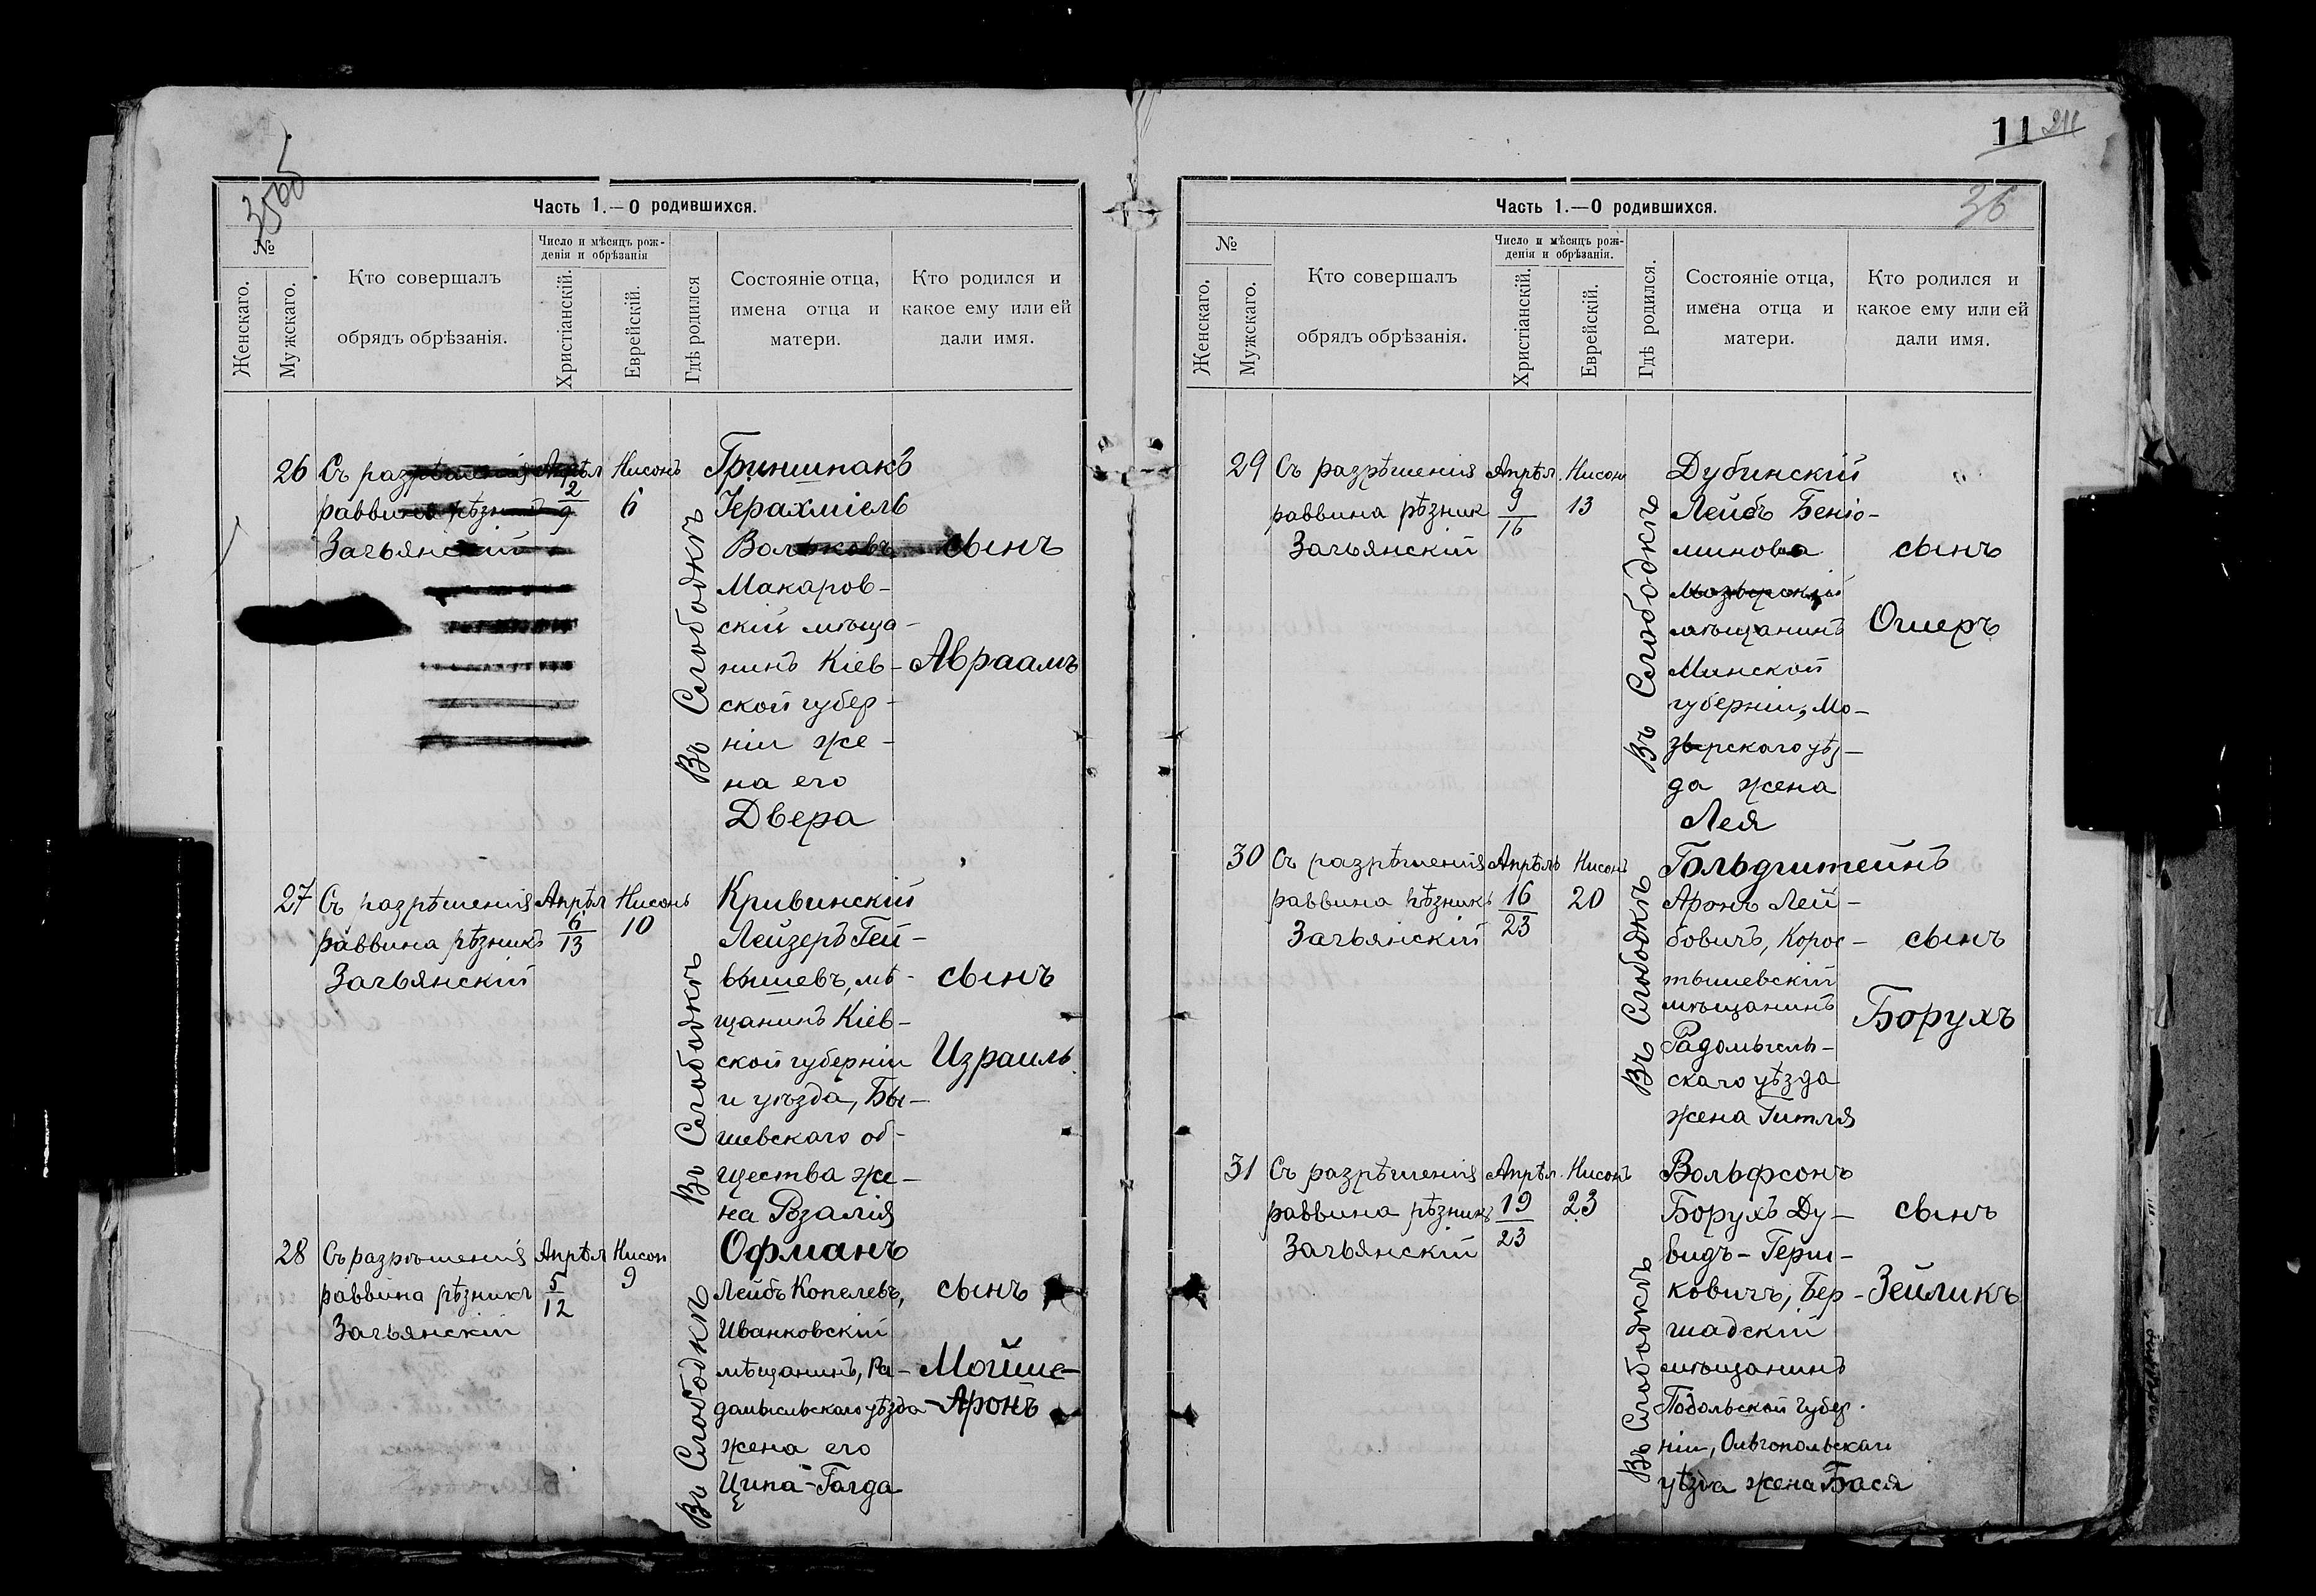 Часть 1.—О родившихся.
№
Женскаго.
Мужскаго.
Кто совершалъ
обрядъ обрѣзанія.
Число и мѣсяцъ рож-
денія и обрѣзанія
Христіанскій.
Еврейскій.
Гдѣ родился
Состояніе отца,
имена отца и
матери.
Кто родился и
какое ему или ей
дали имя.
26 Съ разрѣшенія Апрѣл Нисонъ
раввина рѣзникъ 2/9 6
Загьянскій
Въ Слободкѣ
Гриншпакъ
Іерахміель
Вольковъ
Макаров-
скій мѣща-
нинъ Кіев-
ской губер-
ніи же-
на его
Двера
сынъ
Авраамъ
27 Съ разрѣшенія Апрѣл Нисонъ
раввина рѣзникъ 6/13 10
Загьянскій
Въ Слободкѣ
Кривинскій
Лейзеръ Гей-
вишевъ, мѣ-
щанинъ Кіев-
ской губерніи
и уѣзда, Бы-
шевскаго об-
щества же-
на Розалія
сынъ
Израиль
28 Съ разрѣшенія Апрѣл Нисон
раввина рѣзникъ 5/12 9
Загьянскій
Въ Слободкѣ
Офманъ
Лейбъ Копелевъ,
Иванковскій
мѣщанинъ, Ра-
домысльскаго уѣзда
жена его
Ципа-Голда
сынъ
Мойше-
-Аронъ
11
36
Часть 1.—О родившихся.
№
Женскаго.
Мужскаго.
Кто совершалъ
обрядъ обрѣзанія.
Число и мѣсяцъ рож-
денія и обрѣзанія.
Христіанскій.
Еврейскій.
Гдѣ родился.
Состояніе отца,
имена отца и
матери.
Кто родился и
какое ему или ей
дали имя.
29 Съ разрѣшенія Апрѣл. Нисон
раввина рѣзник 9/16 13
Загьянскій
Въ Слободкѣ
Дубинскій
Лейбъ Беніо-
минова
мозырскій
мѣщанинъ
Минской
губерніи, Мо-
зырскаго уѣз-
да жена
Лея
сынъ
Ошеръ
30 Съ разрѣшенія Апрѣль Нисонъ
раввина рѣзникъ 16/23 20
Загьянскій
Въ Слободкѣ
Гольдштейнъ
Аронъ Лей-
бовичъ, Корос-
тышевскій
мѣщанинъ
Радомысль-
скаго уѣзда
жена Гитля
сынъ
Борухъ
31 Съ разрѣшенія Апрѣл. Нисонъ
раввина рѣзникъ 19/23 23
Загьянскій
Въ Слободкѣ
Вольфсонъ
Борухъ Ду-
видъ-Герш-
ковичъ, Бер-
шадскій
мѣщанинъ
Подольской губер-
ніи, Ольгопольскаго
уѣзда жена Бася
сынъ
Зейликъ